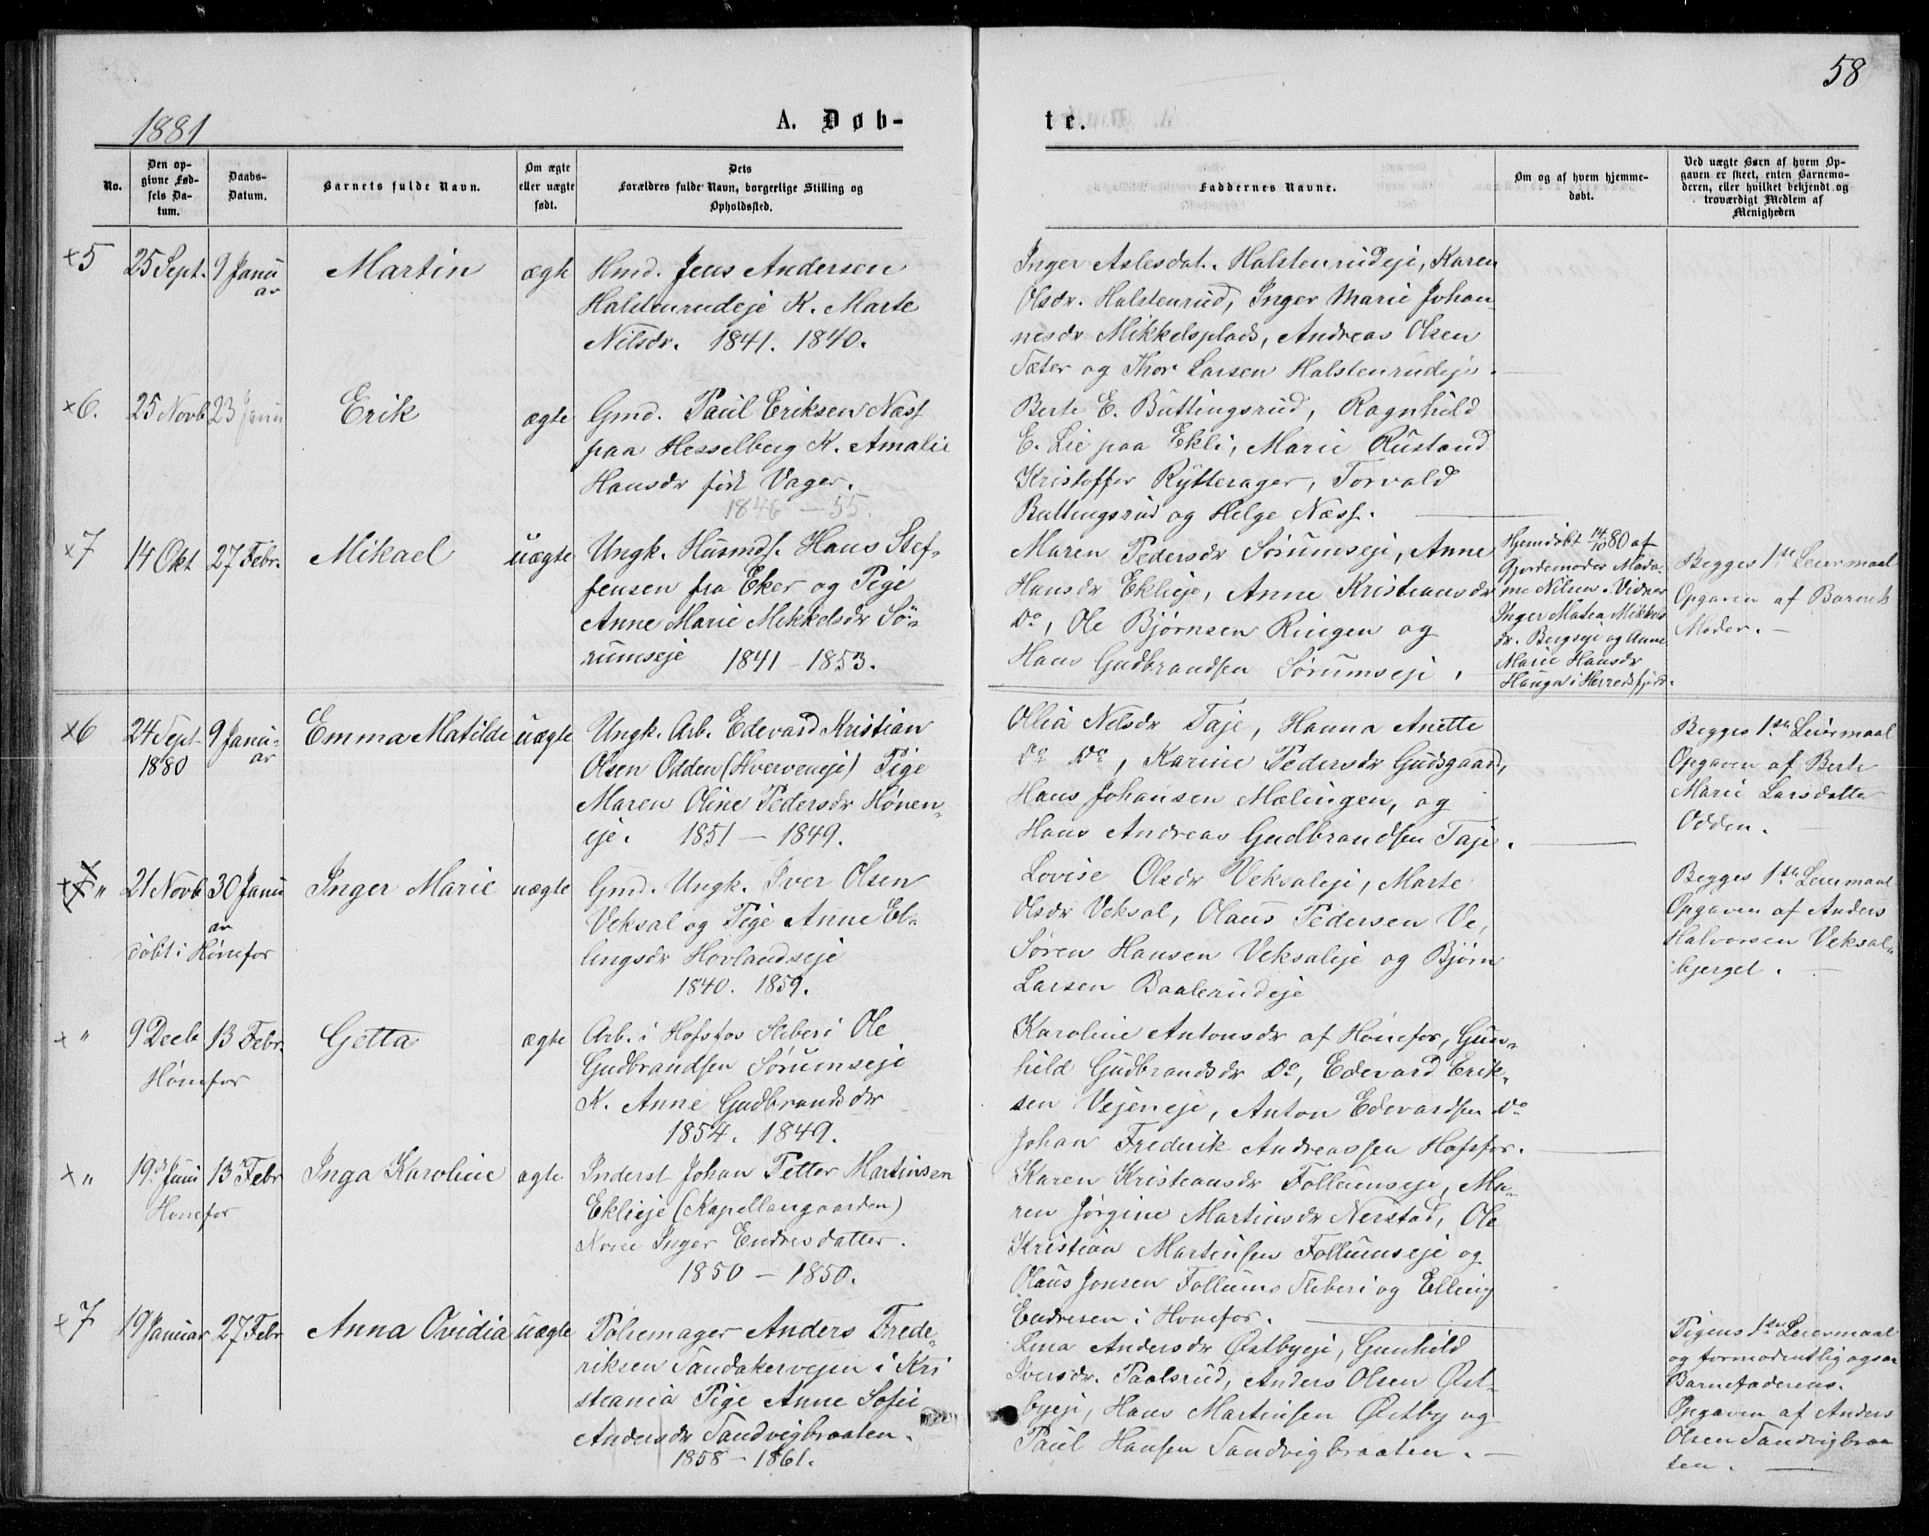 58
1881
A. Døb-
te.
No.
Den op-
givne Fød-
sels Da-
tum.
Daabs-
Datum.
Barnets fulde Navn.
Om ægte
eller uægte
født.
Dets
Forældres fulde Navn, borgerlige Stilling og
Opholdssted.
Faddernes Navne.
Om og af hvem hjemme-
døbt.
Ved uægte Børn af hvem Op-
gaven er skeet, enten Barnemo-
deren, eller hvilket bekjendt og
troværdigt Medlem af
Menigheden
×5
25 Sept.
9 Janu
ar
Martin
ægte
Hmd. Jens Andersen
Halstenrudeje K. Marte
Nilsdr. 1841. 1840.
Inger Aslesdat. Halstenrudeje, Karen
Olsdr. Halstenrud, Inger Marie Johan-
nesdr Mikkelsplads, Andreas Olsen
Sæter og Thor Larsen Halstenrudeje.
×6.
25 Novb
23 Janu
Erik
ægte
Gmd. Paul Eriksen Næss
paa Hesselberg K. Amalie
Hansdr født Vager.
1846 – 55.
Berte E. Buttingsrud, Ragnhild
E. Lie paa Ekli, Marie Rustand
Kristoffer Rytterager, Torvald
Buttingsrud og Helge Næss.
×7
14 Okt
27 Febr.
Mikael
uægte
Ungk. Husmds. Hans Stef-
fensen fra Eker og Pige
Anne Marie Mikkelsdr Sø-
rumseje 1841 – 1853.
Maren Pedersdr Sørumseje, Anne
Hansdr Eklieje, Anne Kristiansdr
Do, Ole Bjørnsen Ringen og
Hans Gudbrandsen Sørumseje.
Hjemdøbt 14/10 80 af
Gjordemoder Mada-
me Nilsen. Vidner
Inger Matea Mikkels
dr. Bergseje og Anne
Marie Hansdr
Hauga i Norderhov
Begges 1ste Leiermaal
Opgaven af Barnets
Moder.
×6
24 Sept
1880
9 Janu-
ar
Emma Matilde
uægte
Ungk. Arb. Edevard Kristian
Olsen Odden (Hverveneje) Pige
Maren Oline Pedersdr Hønen-
eje. 1851 – 1849.
Ollia Nelsdr Taje, Hanna Anette
Do Do, Karine Pedersdr Gudsgaard,
Hans Johansen Mælingen, og
Hans Andreas Gudbrandsen Taje.
Begges 1ste Leiermaal
Opgaven af Berte
Marie Larsdatter
Odden.
× "
21 Novb
30 Janu
ar
døbt i Hønefos
Inger Marie
uægte
Gmd. Ungk. Iver Olsen
Veksal og Pige Anne El-
lingsdr Hovlandseje
1840. 1859.
Lovise Olsdr Veksaleje, Marte
Olsdr Veksal, Olaus Pedersen Ve,
Søren Hansen Veksaleje og Bjørn
Larsen Baalerudeje
Begges 1ste Leiermaal
Opgaven af Anders
Halvorsen Veksal-
bjerget.
× "
9 Decb
13 Febr.
Hønefos
Getta
ægte
Arb. i Hofsfos Sliberi Ole
Gudbrandsen Sørumseje
K. Anne Gudbrandsdr
1854. 1849.
Karoline Antonsdr af Hønefos, Gun-
hild Gudbrandsdr Do, Edevard Erik-
sen Vejeneje, Anton Edevardsen Do
Johan Frederik Andreassen Hofsfos.
× "
19de Juni
13 Febr
Hønefos
Inga Karoline
ægte
Inderst Johan Petter Martinsen
Eklieje (Kapellangaarden)
Kone Inger Endresdatter.
1850 – 1850.
Karen Kristiansdr Follumseje, Ma-
ren Jørgine Martinsdr Nerstad, Ole
Kristian Martinsen Follumseje og
Olaus Jonsen Follums Sliberi og Elling
Endresen i Hønefos.
×7
19 Januar
27 Febr
Anna Ovidia
uægte
Pølsemager Anders Frede-
riksen Sandakerveien i Kri
stiania Pige Anne Sofie
Andersdr Sandvigbraaten.
1858 – 1861.
Lina Andersdr Østbyeje, Gunhild
Iversdr. Paalsrud, Anders Olsen Øst-
byeje, Hans Martinsen Østby og
Paul Hansen Sandvigbraaten.
Pigens 1ste Leiermaal
og formodentlig ogsaa
Barnefaderens.
Opgaven af Anders
Olsen Sandvigbraa
ten.